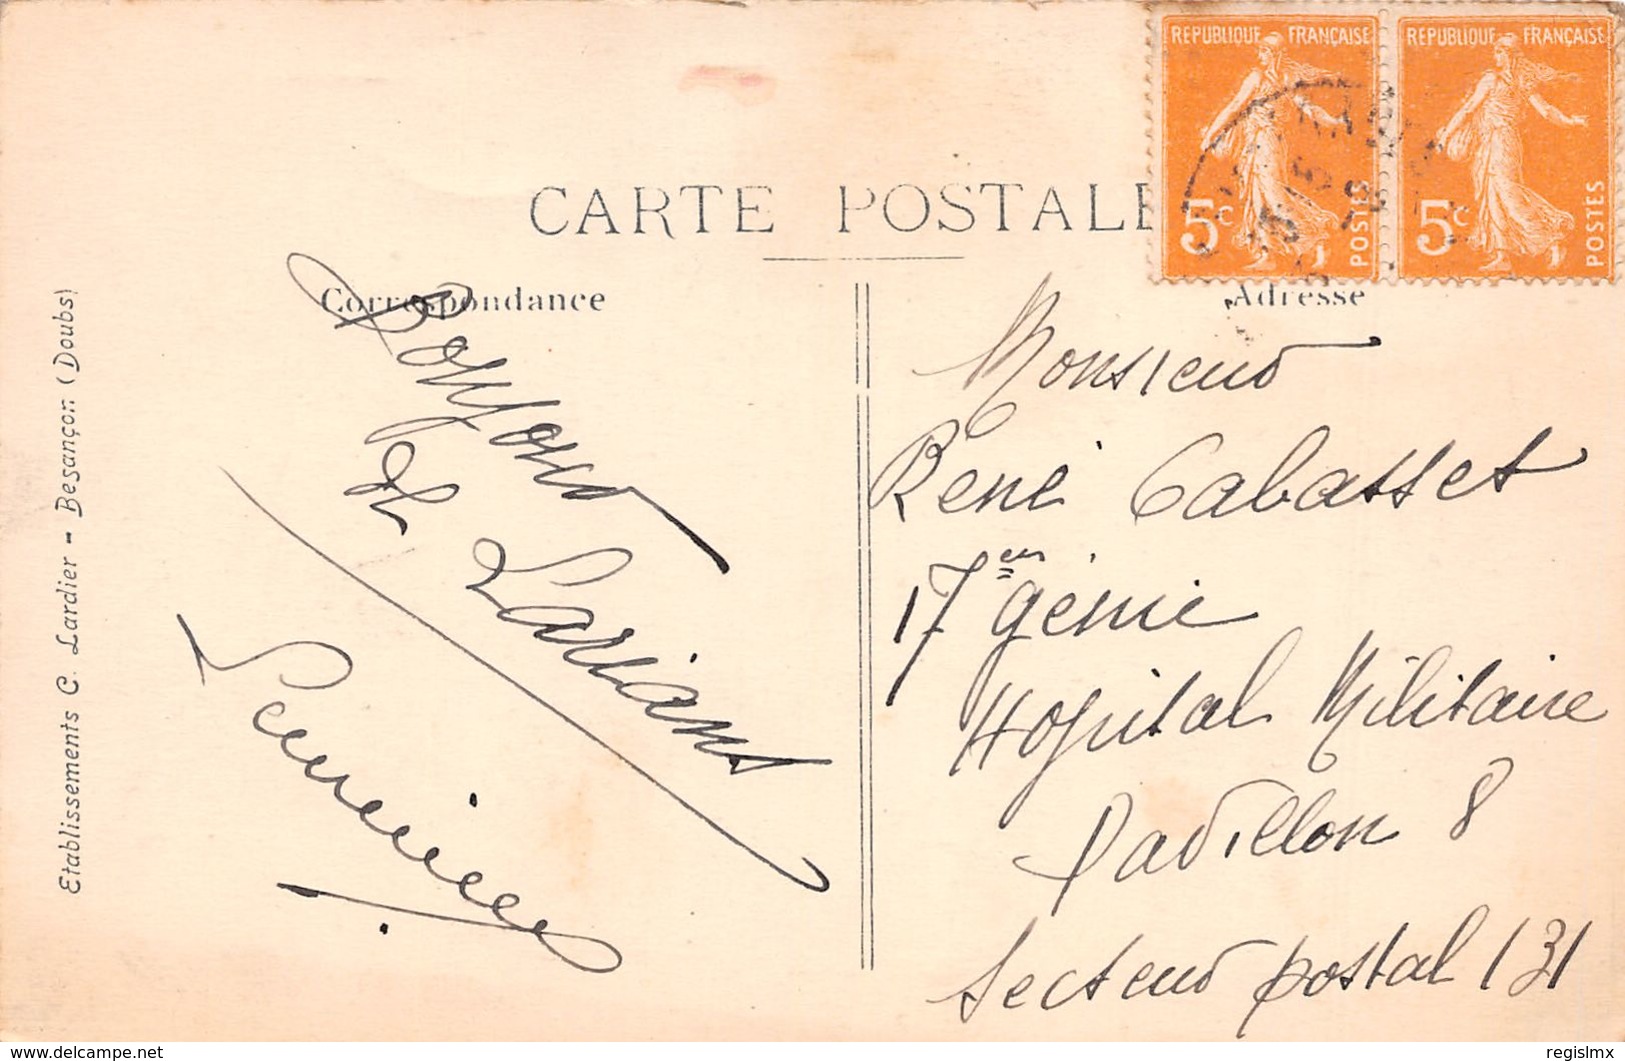 REPUBLIQUE FRANÇAISE
5c POSTES
REPUBLIQUE FRANÇAISE
5c POSTES
CARTE POSTALE
Correspondance
Adresse
Bonjour
de
Lorient
Monsieur
René Cabasset
17em génie
Hopital Militaire
Pavillon 8
Secteur postal 131
Etablissements C. Lardier - Besançon (Doubs)
delcampe.net
regislmx